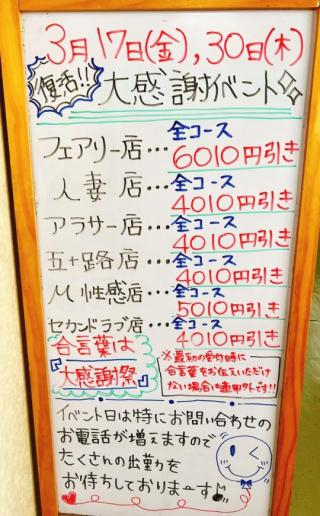 3月17日(金),30日(木)
復活!!
大感謝イベント
フェアリー店…全コース
6010円引き
人妻店…全コース
4010円引き
アラサー店…全コース
4010円引き
五十路店…全コース
4010円引き
M性感店…全コース
5010円引き
セカンドラブ店…全コース
4010円引き
合言葉は
『大感謝祭』
※最初の受付時に
合言葉をお伝えいただけ
ない場合は適用外です!!
イベント日は特にお問い合わせの
お電話が増えますので
たくさんの出勤を
お待ちしておりまーす♪